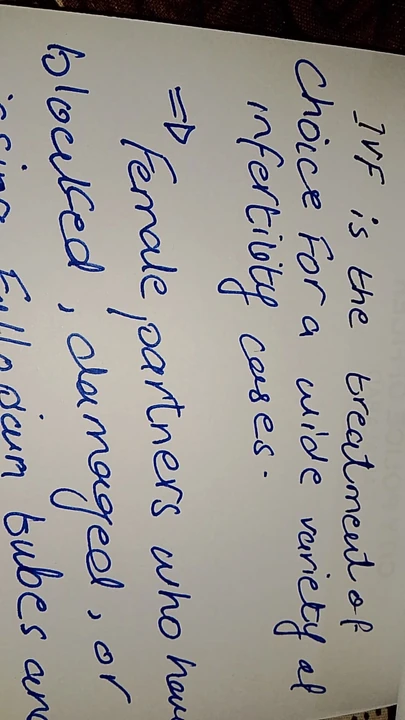 IVF is the treatment of
choice for a wide variety of
infertility cases.
⇒ Female partners who have
blocked, damaged, or
Fallopian tubes an